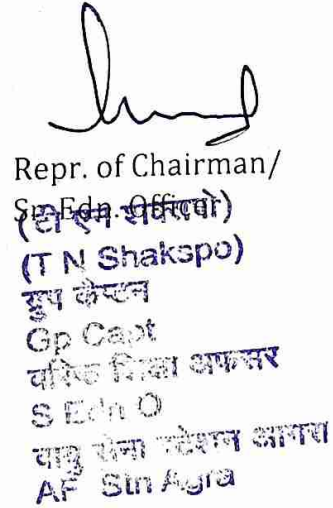 Repr. of Chairman/
Sr. Edn. Officer
(टी एन शक्सपो)
(T N Shakspo)
ग्रुप कैप्टन
Gp Capt
वरिष्ठ शिक्षा अफसर
S Edn O
वायु सेना स्टेशन आगरा
AF Stn Agra